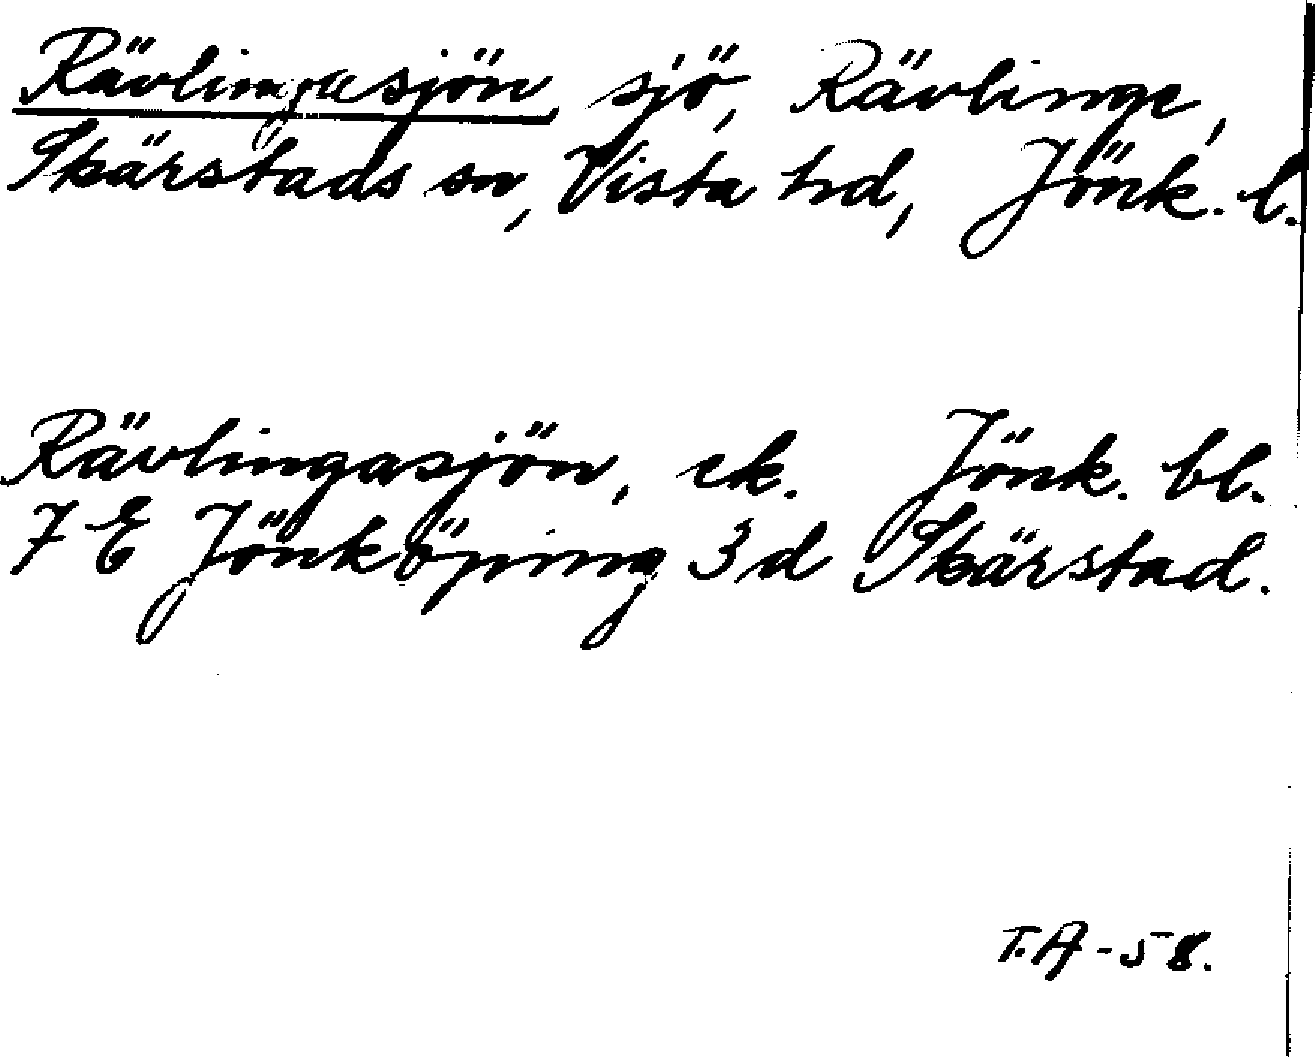 Rävlingasjön, sjö, Rävlinge,
Skärstads sn, Vista hd, Jönk. l.
Rävlingasjön, ek. Jönk. bl.
7 E Jönköping 3 d Skärstad.
T.A-58.